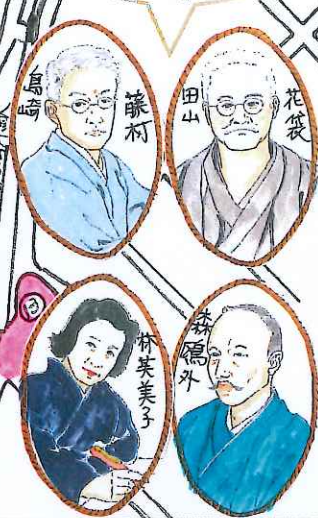 島崎
藤村
田山
花袋
林芙美子
森鴎外